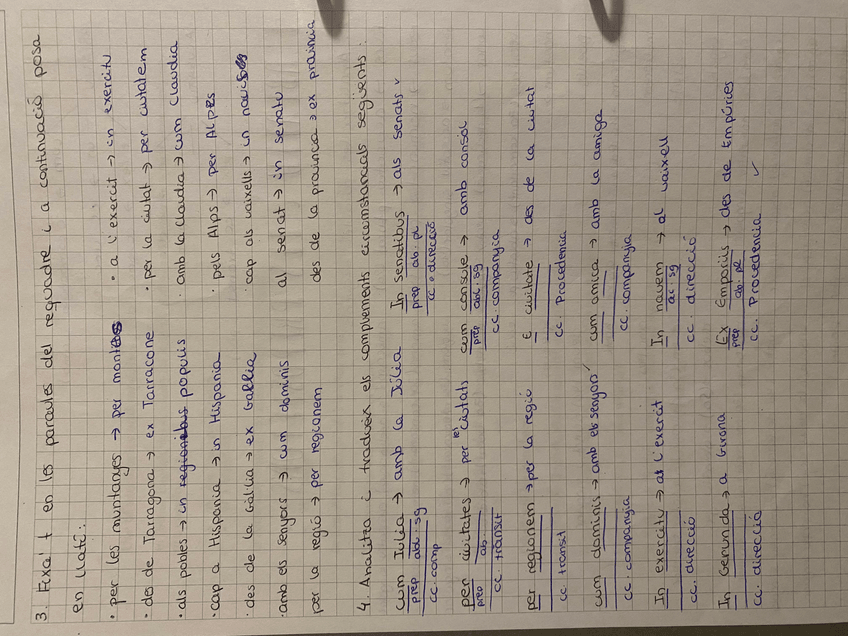 3. Fixa't en les paraules del requadre i a continuació posa
en llatí:
· per les muntanyes → per montes
· des de Tarragona → ex Tarracone
· als pobles → in populis
· cap a Hispania → in Hispania
· des de la Gal·lia → ex Gallia
· amb els senyors → cum dominis
per la regió → per regionem
· a l'exercit → in exercitu
· per la ciutat → per ciutatem
· amb la Claudia → cum Claudia
· pels Alps → per Alpes
· cap als vaixells → in
al senat → in senatu
des de la provincia → ex provincia
4. Analitza i tradueix els complements circumstancials següents:
cum Iulia → amb la Júlia
prep abl·sg
cc·comp
per civitates → per (les) ciutats
prep ab
cc·transit
per regionem → per la regió
cc transit
cum dominis → amb els senyors
cc·companyia
In exercitu → at l'exercit
cc·direcció
In Gerunda → a Girona
cc·direcció
In senatibus → als senats ✓
prep ab·pl
cc·direcció
cum consule → amb consol
prep abl·sg
cc·companyia
E civitate → des de la ciutat
cc·Procedencia
cum amica → amb la amiga
cc·companyia
In navem → al vaixell
ac·sg
cc·direcció
Ex Emporiis → des de Empúries
prep ab·pl
cc·Procedencia ✓